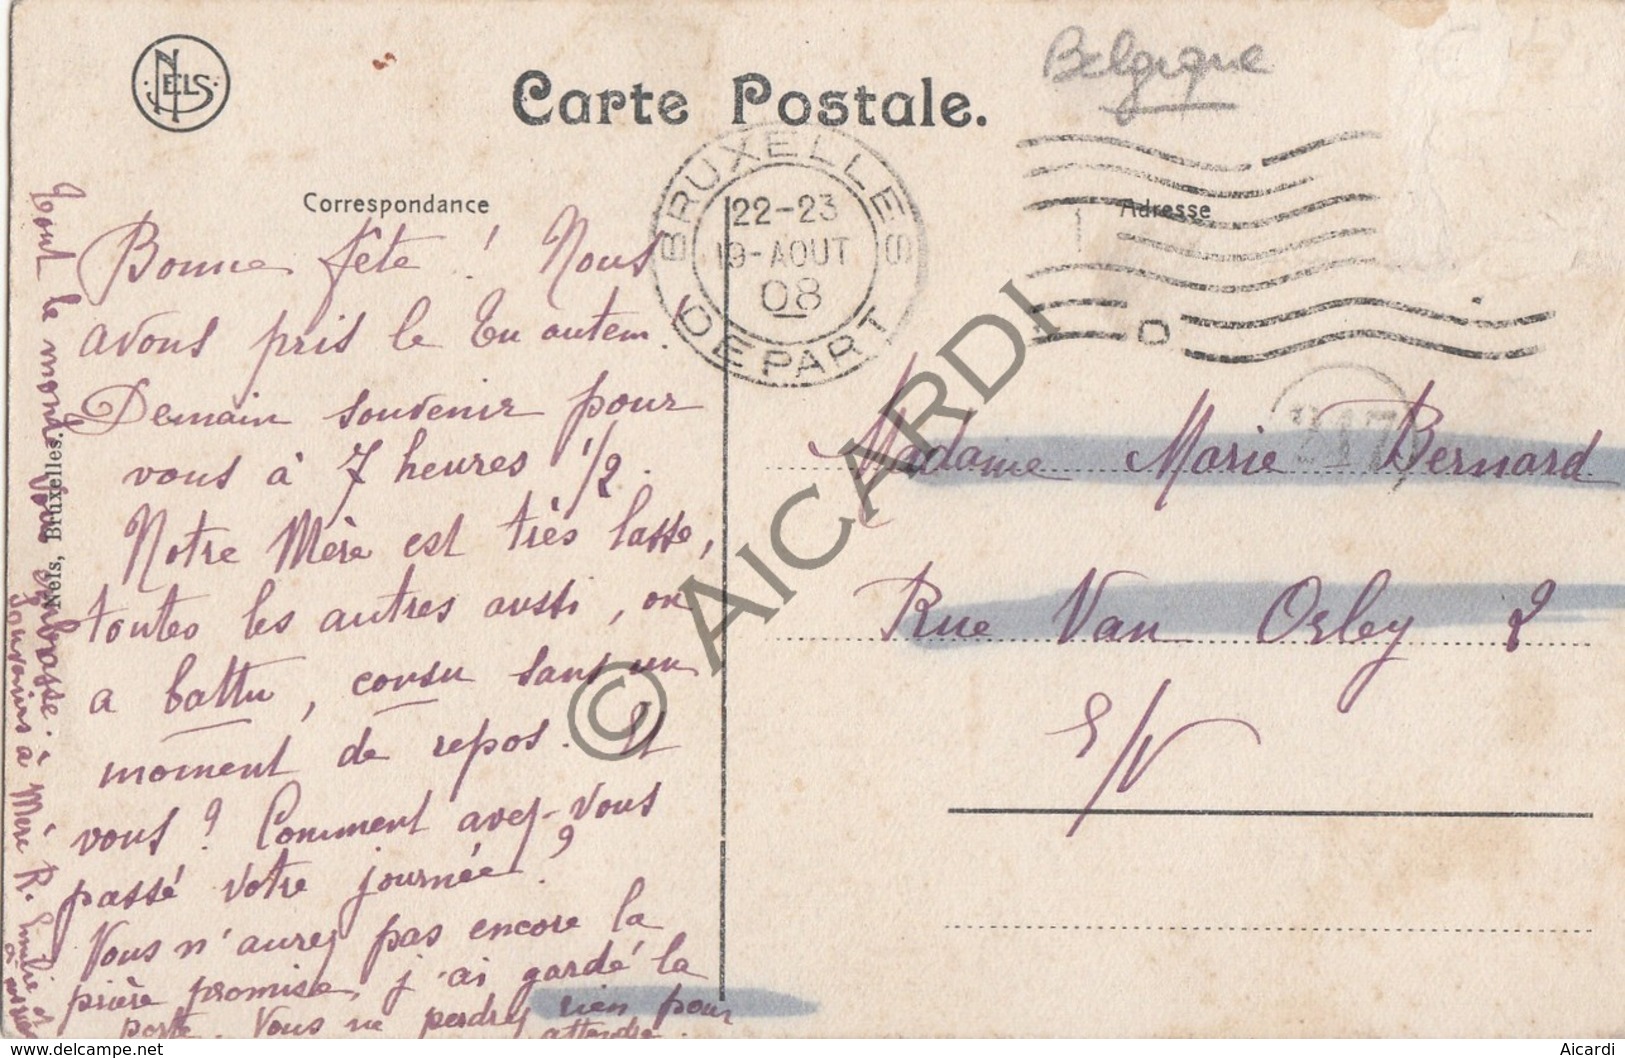 NELS
Carte Postale.
Belgique
BRUXELLES
22-23
19-AOUT
08
DEPART
Correspondance
Adresse
Bonne fête ! Nous
avons pris le Tu autem !
Demain souvenir pour
vous à 7 heures 1/2.
Notre Mère est très lasse,
toutes les autres aussi, on
a battu, cousu sans un
moment de repos. Et
vous ? Comment avez-vous
passé votre journée ?
Vous n'aurez pas encore la
prière promise, j'ai gardé la
porte. Vous ne perdrez rien pour
attendre.
Tout le monde vous embrasse.
Souvenirs à Mère R. Emilie et
à
Nels, Bruxelles.
Madame Marie Bernard
Rue Van Orley 2
E/V
317
© AICARDI
delcampe.net
Aicardi